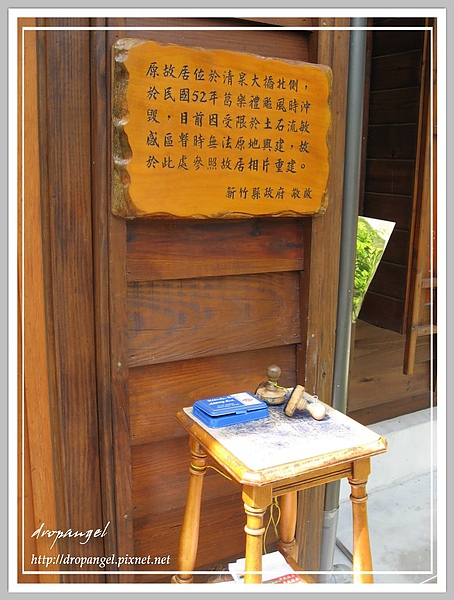 原故居位於清泉大橋北側，
於民國52年葛樂禮颱風時沖
毀，目前因受限於土石流敏
感區暫時無法原地興建，故
於此處參照故居相片重建。
新竹縣政府 敬啟
dropangel
http://dropangel.pixnet.net